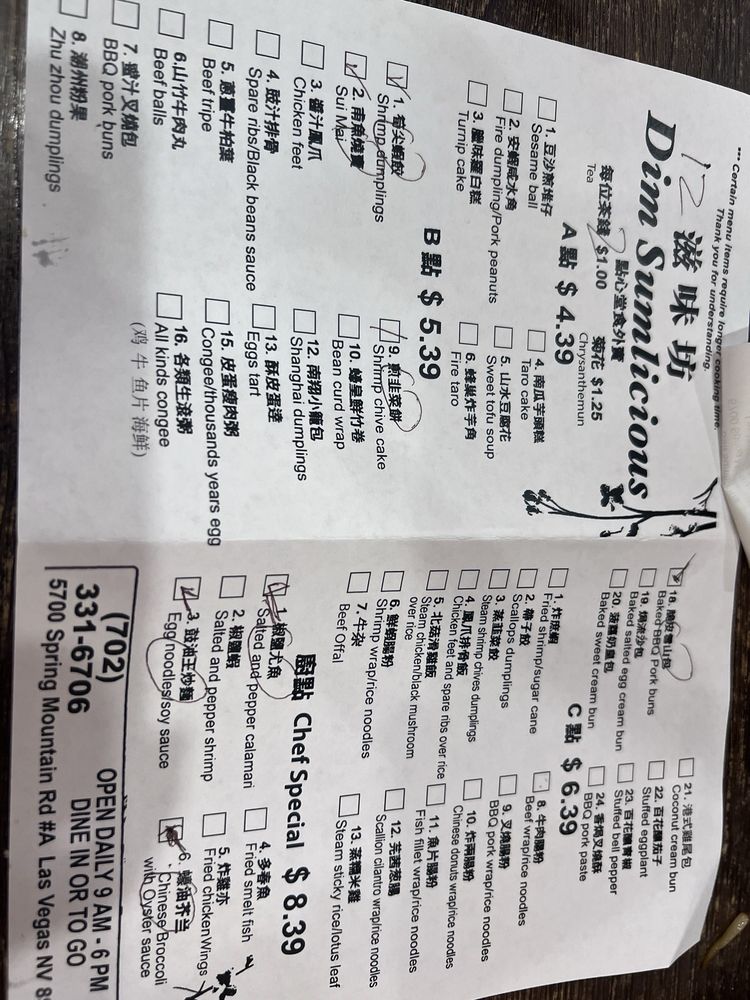 *** Certain menu items require longer cooking time.
Thank you for understanding.
12 滋味坊
Dim Sumlicious
點心堂食外賣
每位茶錢 $1.00
Tea
菊花 $1.25
Chrysanthemun
A 點 $ 4.39
1. 豆沙煎堆仔
Sesame ball
2. 安蝦咸水角
Fire dumpling/Pork peanuts
3. 臘味蘿白糕
Turnip cake
4. 南瓜芋頭糕
Taro cake
5. 山水豆腐花
Sweet tofu soup
6. 蜂巢炸芋角
Fire taro
B 點 $ 5.39
1. 筍尖蝦餃
Shrimp dumplings
2. 南魚燒賣
Sui Mai
3. 醬汁鳳爪
Chicken feet
4. 豉汁排骨
Spare ribs/Black beans sauce
5. 蔥薑牛柏葉
Beef tripe
6. 山竹牛肉丸
Beef balls
7. 蜜汁叉燒包
BBQ pork buns
8. 潮州粉果
Zhu zhou dumplings
9. 煎韭菜餅
Shrimp chive cake
10. 蠔皇鮮竹卷
Bean curd wrap
12. 南翔小籠包
Shanghai dumplings
13. 酥皮蛋達
Eggs tart
15. 皮蛋瘦肉粥
Congee/thousands years egg
16. 各類生滾粥
All kinds congee
(鸡 牛 鱼片 海鲜)
18. 脆皮雪山包
Baked BBQ Pork buns
19. 焗流沙包
Baked salted egg cream bun
20. 菠蘿奶皇包
Baked sweet cream bun
21. 港式雞尾包
Coconut cream bun
22. 百花釀茄子
Stuffed eggplant
23. 百花釀青椒
Stuffed bell pepper
24. 香焗叉燒酥
BBQ pork paste
C 點 $ 6.39
1. 炸蔗蝦
Fried shrimp/sugar cane
2. 帶子餃
Scallops dumplings
3. 蒸韭菜餃
Steam shrimp chives dumplings
4. 鳳爪排骨飯
Chicken feet and spare ribs over rice
5. 北菇滑雞飯
Steam chicken/black mushroom
over rice
6. 鮮蝦腸粉
Shrimp wrap/rice noodles
7. 牛杂
Beef Offal
8. 牛肉腸粉
Beef wrap/rice noodles
9. 叉燒腸粉
BBQ pork wrap/rice noodles
10. 炸兩腸粉
Chinese donuts wrap/rice noodles
11. 魚片腸粉
Fish fillet wrap/rice noodles
12. 芫茜葱腸
Scallion cilantro wrap/rice noodles
13. 蒸糯米雞
Steam sticky rice/lotus leaf
廚點 Chef Special $ 8.39
1. 椒鹽尤魚
Salted and pepper calamari
2. 椒鹽蝦
Salted and pepper shrimp
3. 豉油王炒麵
Egg noodles/soy sauce
4. 多春魚
Fried smelt fish
5. 炸雞亦
Fried chicken Wings
6. 蠔油芥兰
Chinese Broccoli
with Oyster sauce
(702)
331-6706
OPEN DAILY 9 AM - 6 PM
DINE IN OR TO GO
5700 Spring Mountain Rd #A Las Vegas NV